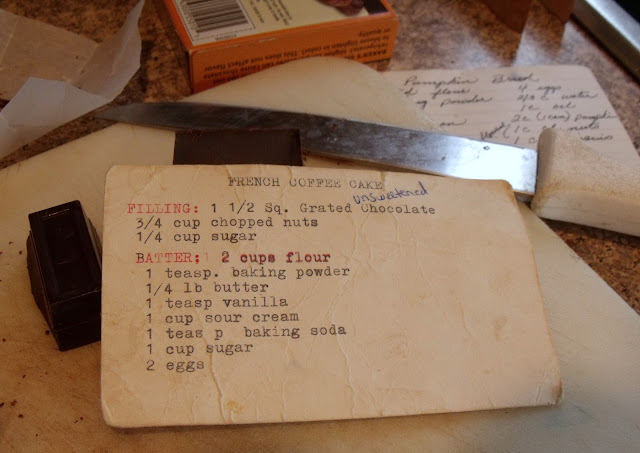 Pumpkin Bread
flour 4 eggs
powder 2/3 c water
1 c oil
2c (1can) pumpkin
1 c
FRENCH COFFEE CAKE
unsweetened
FILLING: 1 1/2 Sq. Grated Chocolate
3/4 cup chopped nuts
1/4 cup sugar
BATTER: 2 cups flour
1 teasp. baking powder
1/4 lb butter
1 teasp vanilla
1 cup sour cream
1 teas p baking soda
1 cup sugar
2 eggs